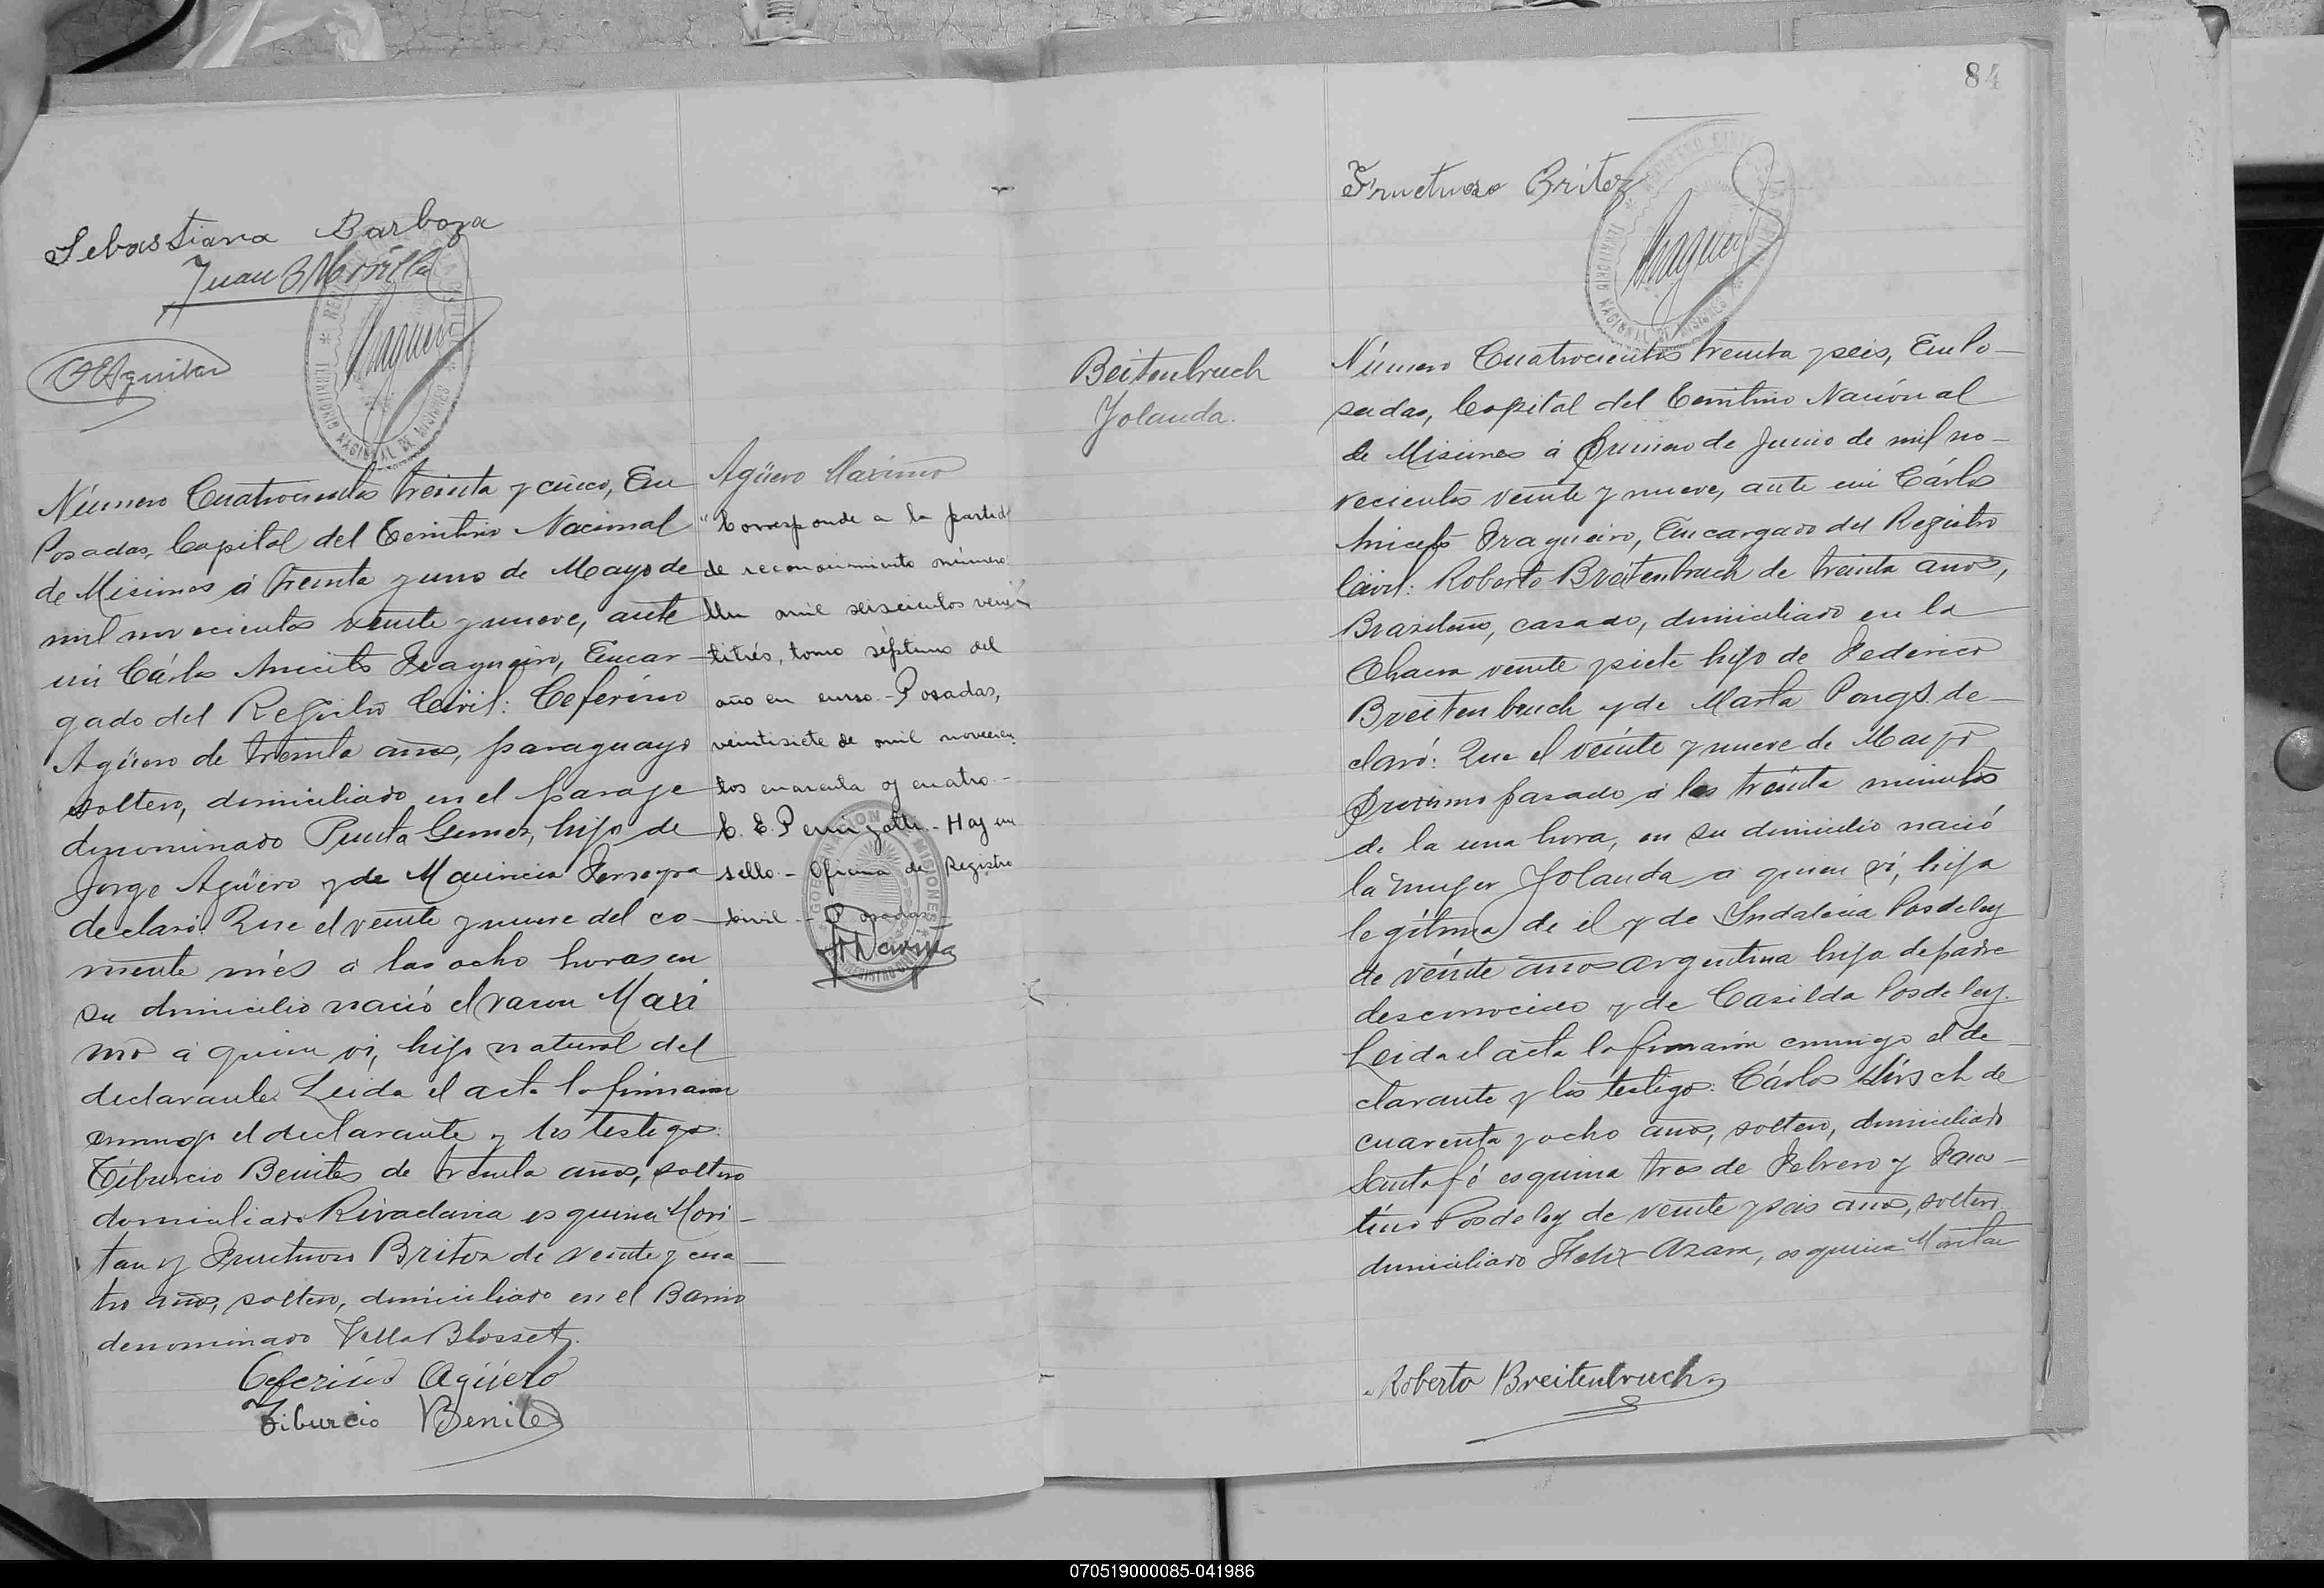 Sebastiana Barboza
Juan B Morilla
Aguilar
Número Cuatrocientos treinta y cinco, En
Posadas, Capital del Territorio Nacional
de Misiones á treinta y uno de Mayo de
mil novecientos veinte y nueve, ante
mi Cárlos Aniceto Fragueiro, Encar-
gado del Registro Civil: Ceferino
Agüero de treinta años, paraguayo
soltero, domiciliado en el paraje
denominado Punta Gomez, hijo de
Jorge Agüero y de Mauricia
declaró: Que el veinte y nueve del co-
rriente més á las ocho horas en
su domicilio nació el varon Maxi
mo á quien ví, hijo natural del
declarante. Leida el acta la firmaron
conmigo el declarante y los testigos:
Tiburcio Benites de treinta años, soltero
domiciliado Rivadavia esquina Mori-
tan y Fructuoso Britez de veinte y cua-
tro años, soltero, domiciliado en el Barrio
denominado Villa Blosset.
Ceferino Agüero
Tiburcio Benites
Agüero Maximo
"Corresponde a la partida
de reconocimiento número
Un mil seiscientos vein
titrés, tomo séptimo del
año en curso.- Posadas,
veintisiete de mil novecien
tos cuarenta y cuatro.-
C. E. - Hay un
sello.- Oficina de Registro
Civil.- Posadas.-
GOBERNACION MISIONES
84
Fructuoso Britez
REGISTRO CIVIL
TERRITORIO NACIONAL DE MISIONES
Beitenbruch
Yolanda.
Número Cuatrocientos treinta y seis, En Po-
sadas, Capital del Territorio Nacional
de Misiones á primero de Junio de mil no-
vecientos veinte y nueve, ante mi Cárlos
Aniceto Fragueiro, Encargado del Registro
Civil: Roberto Breitenbruch de treinta años,
Brasileño, casado, domiciliado en la
Chacra veinte y siete hijo de Federico
Breitenbruch y de Marta Pongs. de-
claró: Que el veinte y nueve de Mayo
próximo pasado á los treinta minutos
de la una hora, en su domicilio nació
la mujer Yolanda a quien ví, hija
legítima de él y de Indalecia Posdeley
de veinte años argentina hija de padre
desconocido y de Casilda Posdeley.
Leida el acta la firmaron conmigo el de-
clarante y los testigos: Cárlos Hirsch de
cuarenta y ocho años, soltero, domiciliado
Santa fé esquina tres de Febrero y Faus-
tino Posdeley de veinte y seis años, soltero
domiciliado Felix Azara, esquina Moritan
Roberto Breitenbruch
070519000085-041986